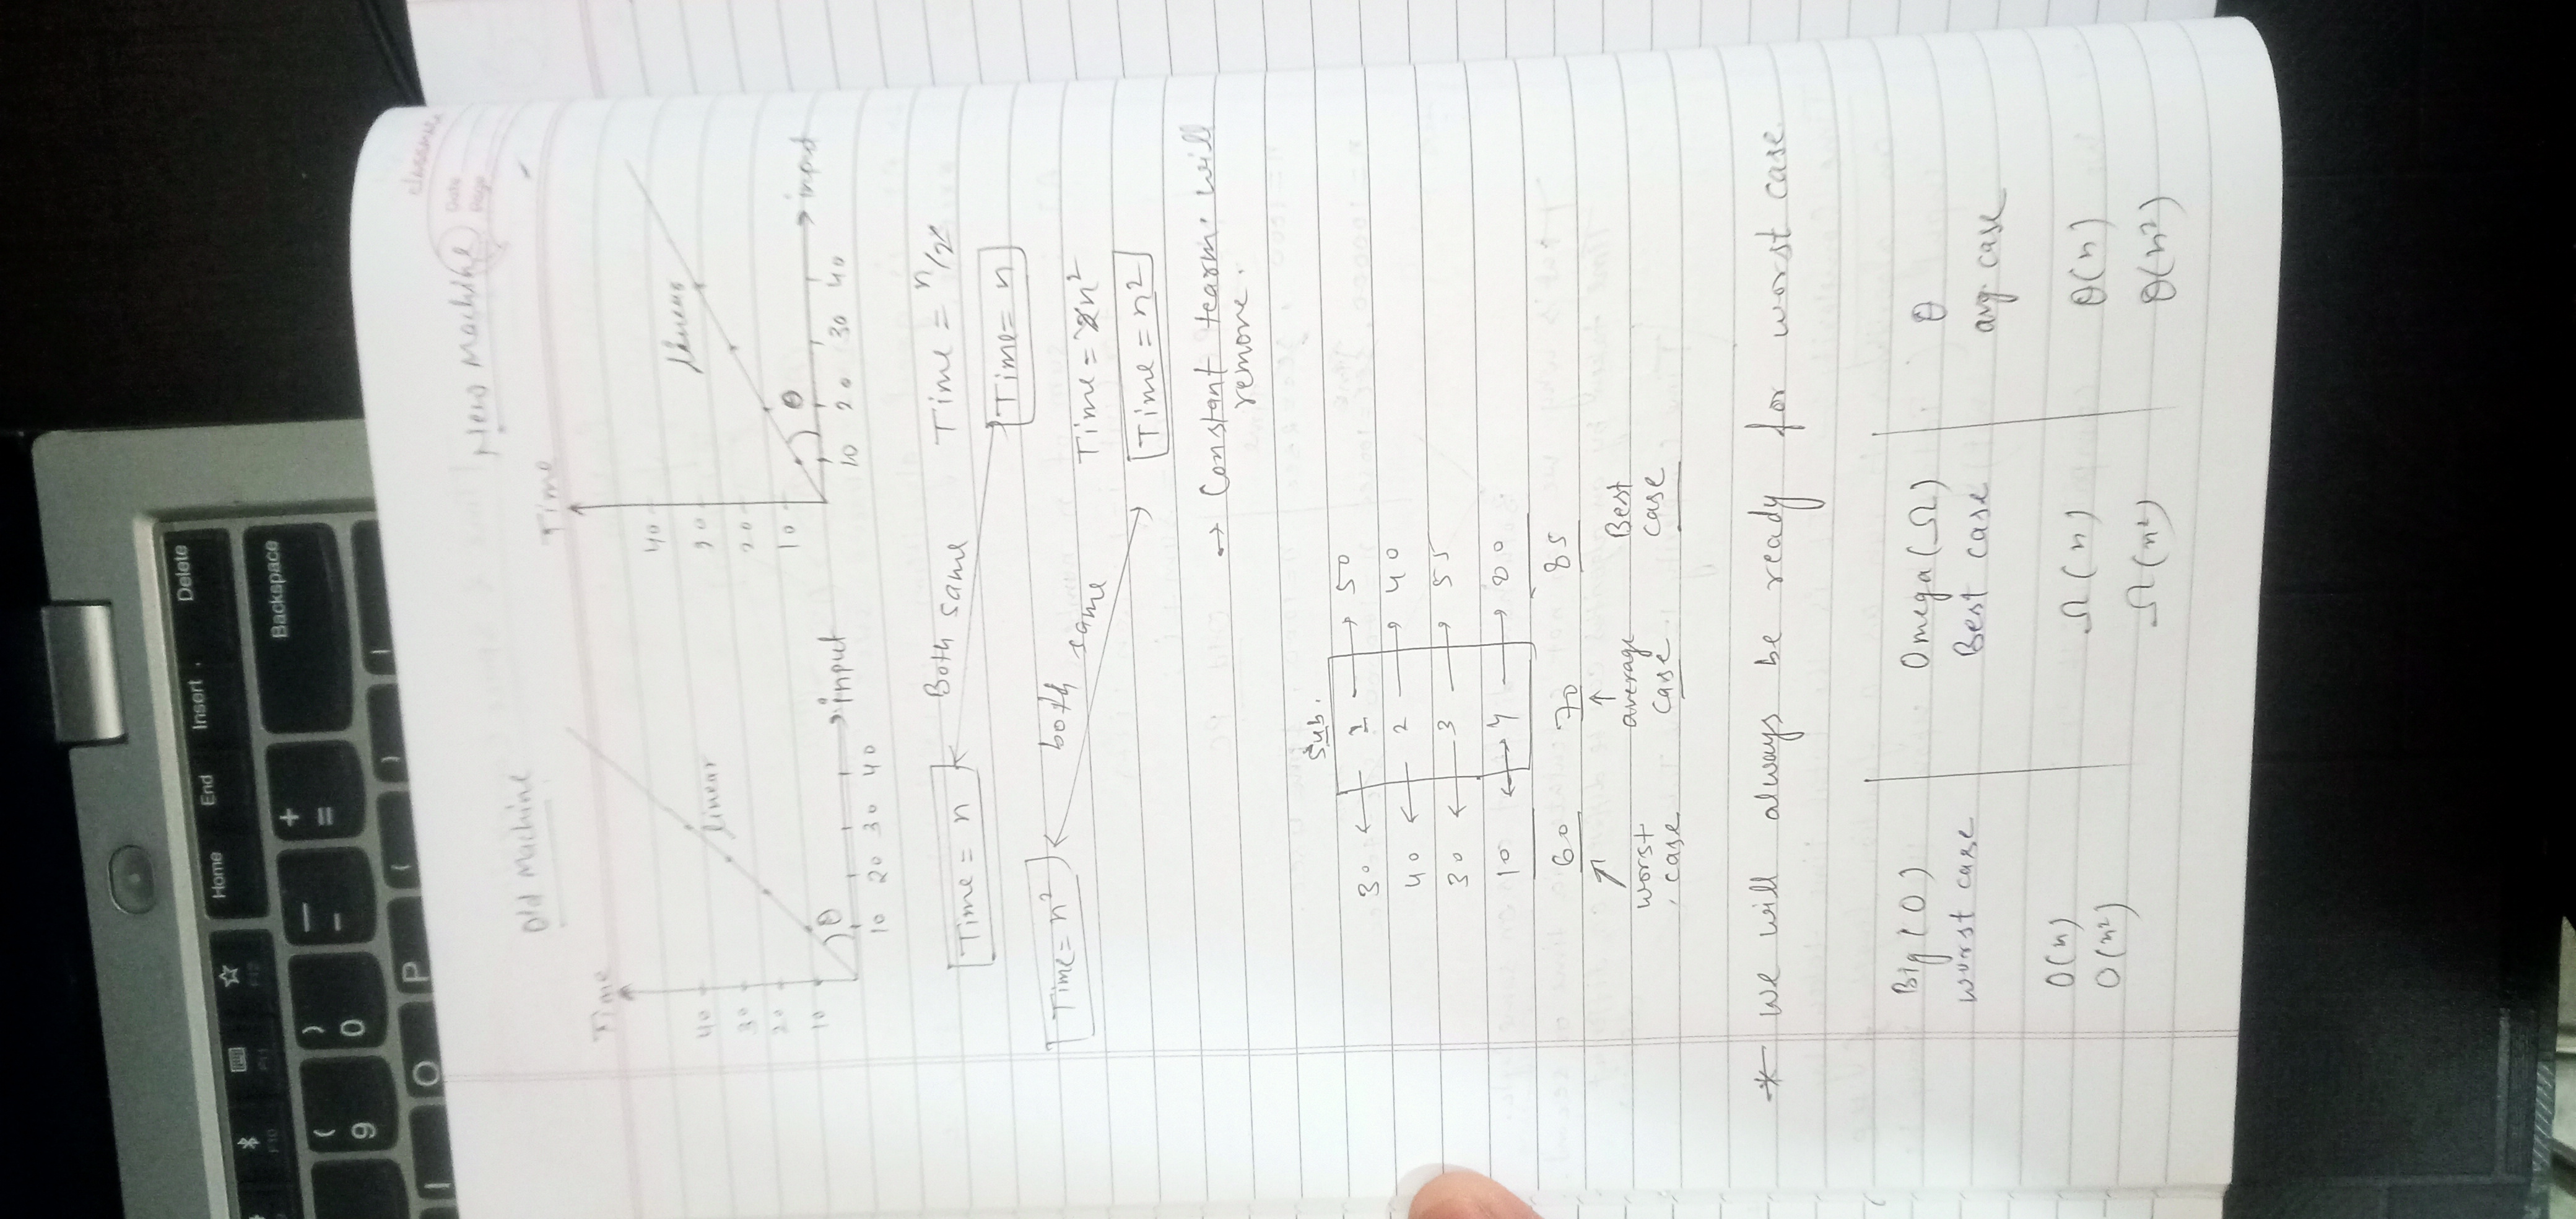 Delete
Insert
End
Home
F10
F11
F12
Backspace
(
9
)
0
—
-
+
=
I
O
P
{
}
|
classmate
Date
Page
Old Machine
New Machine
Time
40
30
20
10
linear
θ
input
10 20 30 40
Time
40
30
20
10
linear
θ
input
10 20 30 40
Time = n
Both same
Time = n/2
Time = n
Time = n²
both same
Time = 2n²
Time = n²
→ Constant tearm. will
remove.
Sub.
30 ← 1 → 50
40 ← 2 → 40
30 ← 3 → 55
10 ↔ 4 → 80
60 70 85
worst
case
average
case
Best
case
* we will always be ready for worst case.
Big(O) Omega(Ω) θ
worst case Best case avg. case
O(n) Ω(n) θ(n)
O(n²) Ω(n²) θ(n²)